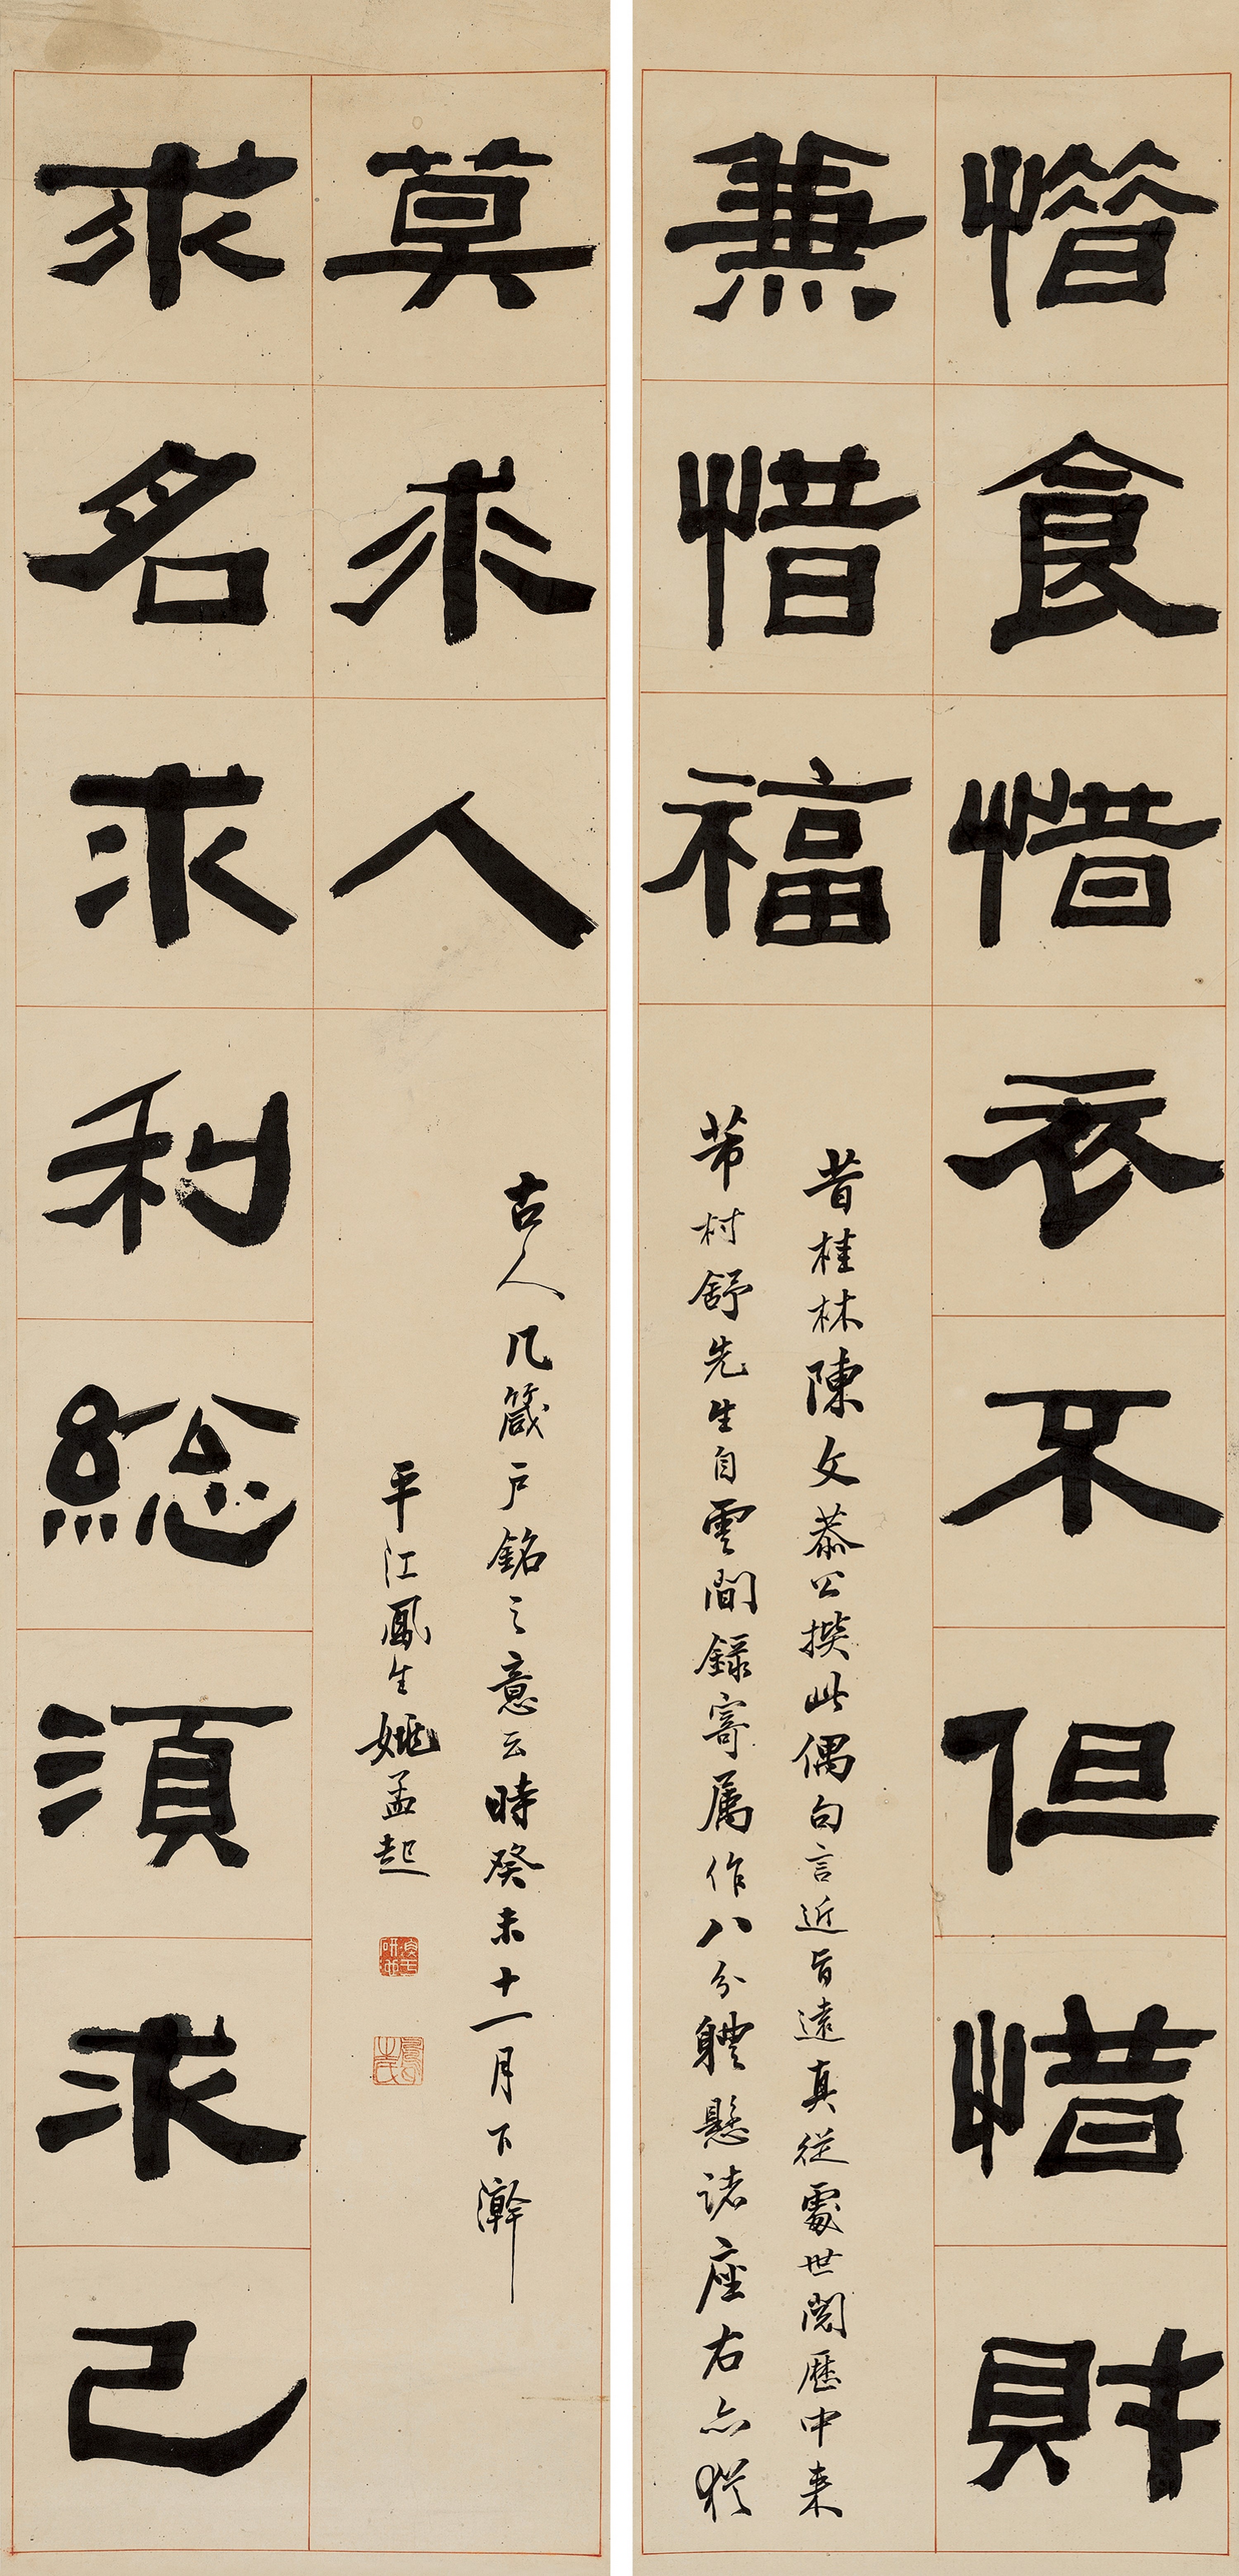 惜食惜衣不但惜財
兼惜福
昔桂林陳文恭公撰此偶句言近旨遠真從處世閱歷中来
芾村舒先生自雲間錄寄属作八分體懸諸座右亦猶
求名求利総須求己
莫求人
古人几箴户銘之意云時癸未十一月下澣
平江鳳生姚孟起